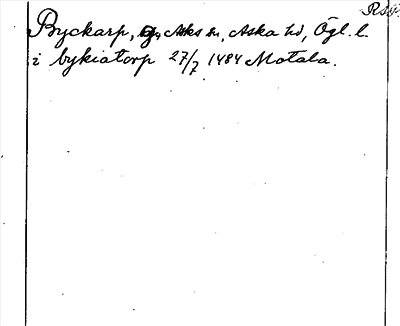 Rsv
Byckarp, g, Asks sn, Aska hd, Ögl. l.
i bykiatorp 27/7 1484 Motala.